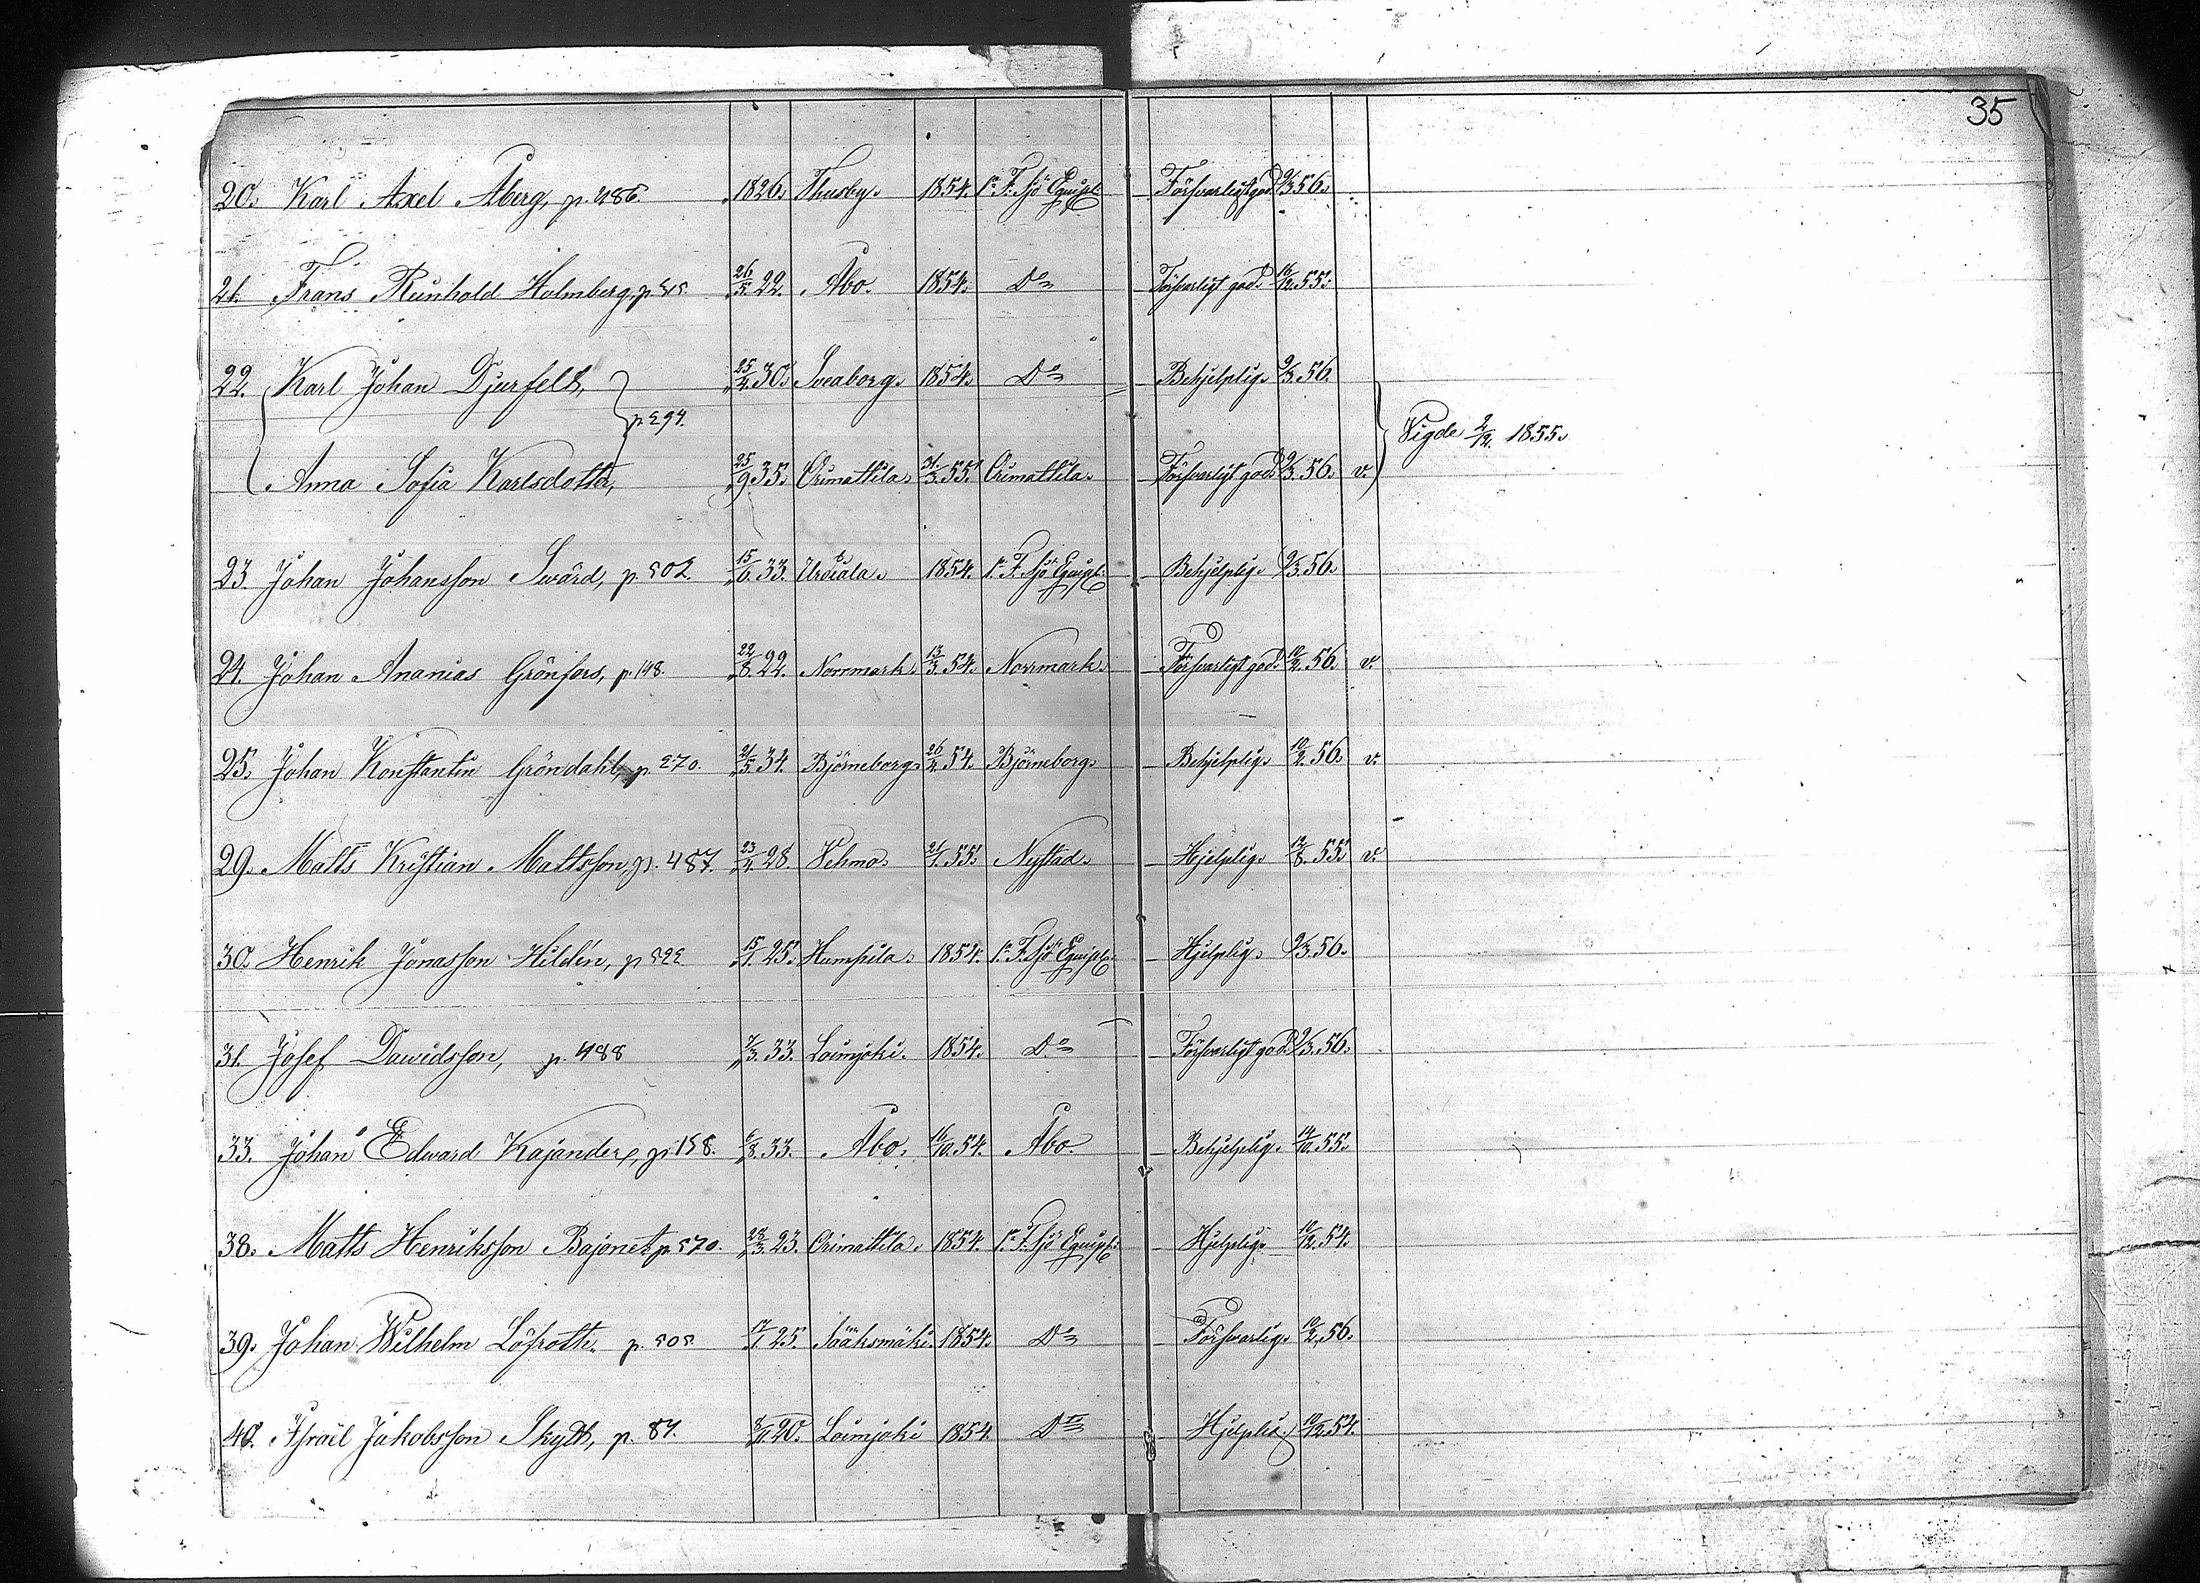 35
20. Karl Axel Åberg, p. 486. 1826. Thusby. 1854. 1a F. Sjö Equip. Försvarligt god. 9/3. 56.
21. Frans Reinhold Holmberg, p. 26/5. 22. Åbo. 1854. Do Försvarligt god. 16/12. 55.
22. Karl Johan Djurfelt, 25/4. 30. Sveaborg. 1854. Do Behjelplig. 9/3. 56.
p 294. Vigde 2/12. 1855.
Anna Sofia Karlsdotter, 25/9. 35. Orimattila. 31/3. 55. Orimattila. Försvarligt god. 9/3. 56. v.
23. Johan Johansson Swärd, p. 502. 15/6. 33. Urdiala. 1854. 1a F. Sjö Equip. Behjelplig. 9/3. 56.
24. Johan Ananias Grönfors, p. 148. 22/8. 22. Norrmark. 13/3. 54. Norrmark. Försvarligt god. 10/2. 56. v.
25. Johan Konstantin Gröndahl, p. 270. 21/5. 34. Björneborg. 26/4. 54. Björneborg. Behjelplig. 10/2. 56. v.
29. Matts Kristian Mattsson, p. 487. 23/4. 28. Vehmo. 21/1. 55. Nystad. Hjelplig. 12/8. 55. v.
30. Henrik Jonasson Hildén, p 522. 15/1. 25. Humpila. 1854. 1a F. Sjö Equip. Hjelplig. 9/3. 56.
31. Josef Dawidsson, p. 488 7/3. 33. Loimjoki. 1854. Do Försvarligt god. 9/3. 56.
33. Johan Edward Kajander, p. 158. 6/8. 33. Åbo. 16/10. 54. Åbo. Behjelplig. 14/10. 55.
38. Matts Henriksson Bajonet, p. 570. 22/3. 23. Orimattila. 1854. 1a F. Sjö Equip. Hjelplig. 10/12. 54.
39. Johan Wilhelm Löfroth. p. 505 17/1. 25. Sääksmäki. 1854. Do Försvarlig. 10/2. 56.
40. Israël Jakobsson Skytt, p. 87. 8/4. 20. Loimjoki 1854. Do Hjelplig. 10/12. 54.